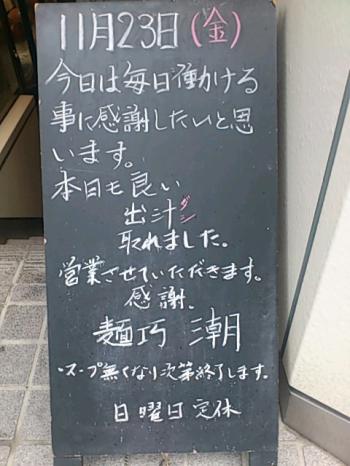 11月23日(金)
今日は毎日働ける
事に感謝したいと思
います。
本日も良い
出汁ダシ
取れました。
営業させていただきます。
感謝.
麺巧 潮
・スープ無くなり次第終了します。
日曜日定休